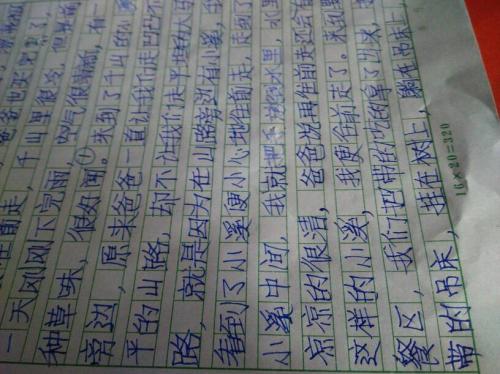 在前走，千山里很冷，
一天刚刚下完雨，空气很清新，有一
种草味，很好闻。①来到了千山的小溪
旁边，原来爸爸一直让我们走凹凸不
平的山路，却不让我们走平坦的大马
路，就是因为在山路旁边有小溪，我
看到了小溪便小心地往前走，走到了
小溪中间，我就把手放到水里，水里
凉凉的很清，爸爸说再往前走还会有
这样的小溪，我便往前走了。来到野
餐区，我们把带的吃的拿了出来，我
带的吊床，挂在树上，躺在吊床上，
16×20=320